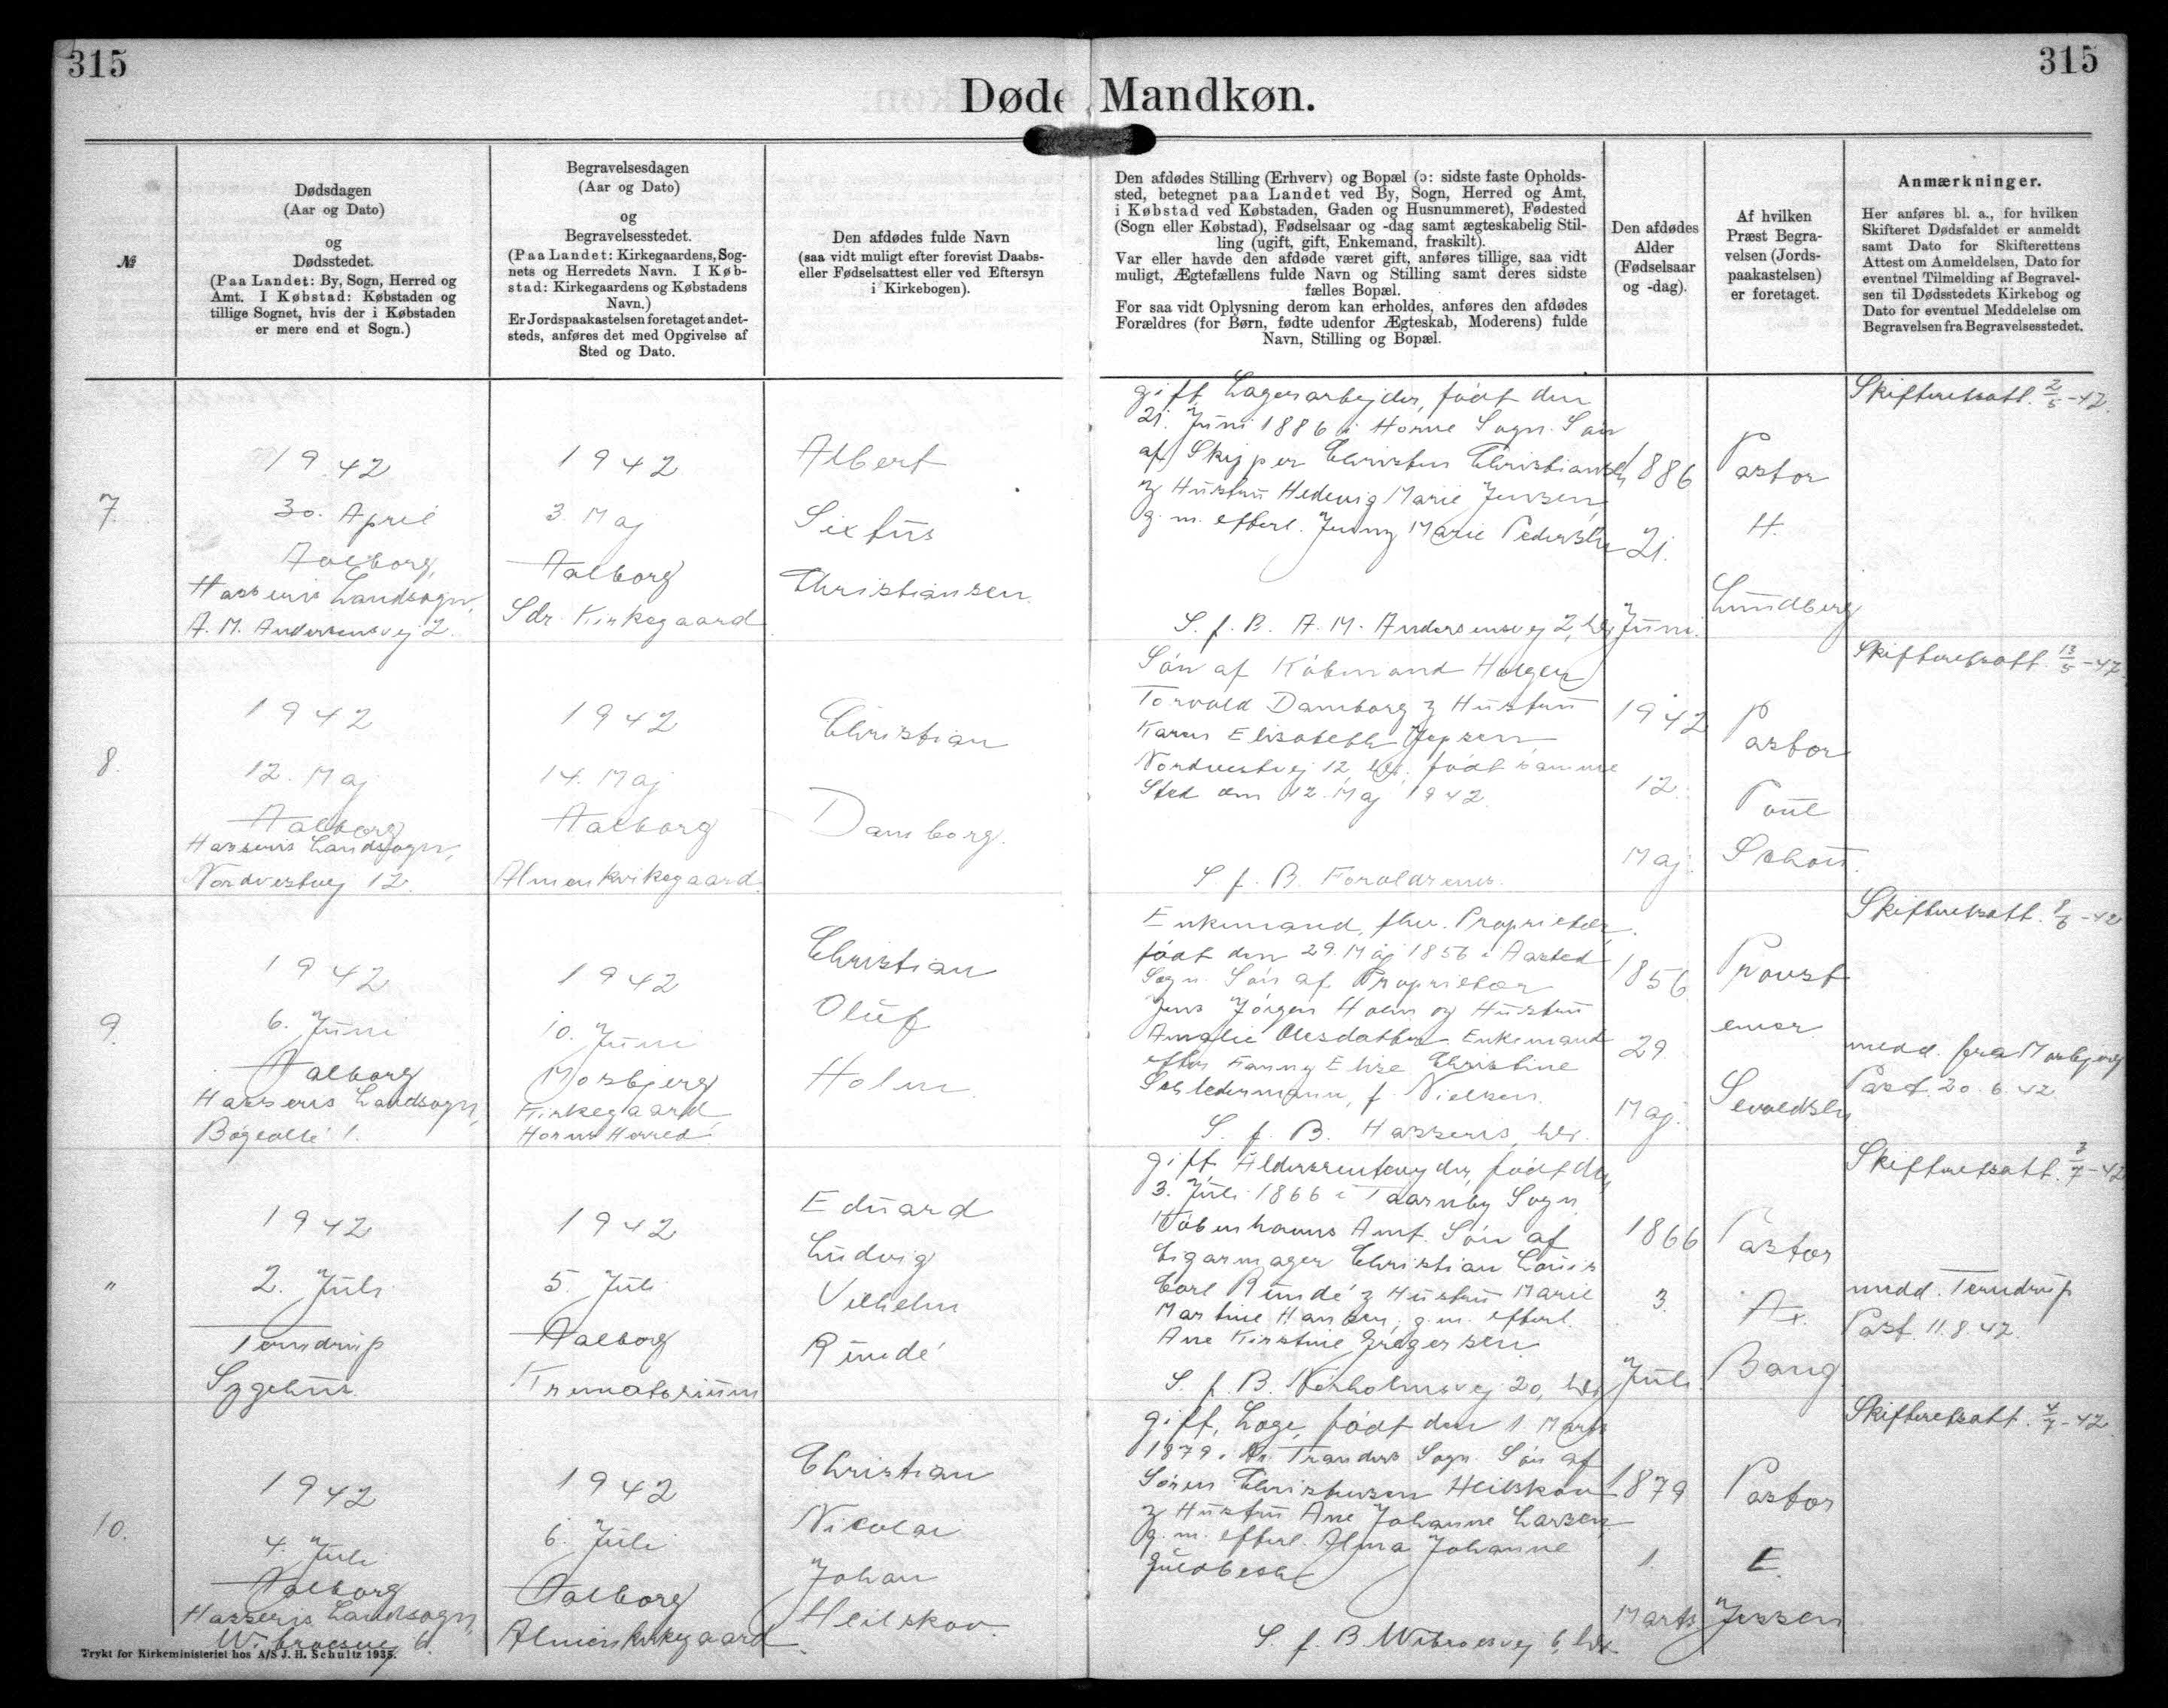 315
315
Døde Mandkøn.
№
Dødsdagen
(Aar og Dato)
og
Dødsstedet.
(Paa Landet: By, Sogn, Herred og
Amt. I Købstad: Købstaden og
tillige Sognet, hvis der i Købstaden
er mere end et Sogn.)
Begravelsesdagen
(Aar og Dato)
og
Begravelsesstedet.
(Paa Landet: Kirkegaardens, Sog-
nets og Herredets Navn. I Køb-
stad: Kirkegaardens og Købstadens
Navn.)
Er Jordspaakastelsen foretaget andet-
steds, anføres det med Opgivelse af
Sted og Dato.
Den afdødes fulde Navn
(saa vidt muligt efter forevist Daabs-
eller Fødselsattest eller ved Eftersyn
i Kirkebogen).
Den afdødes Stilling (Erhverv) og Bopæl (ɔ: sidste faste Opholds-
sted, betegnet paa Landet ved By, Sogn, Herred og Amt,
i Købstad ved Købstaden, Gaden og Husnummeret), Fødested
(Sogn eller Købstad), Fødselsaar og -dag samt ægteskabelig Stil-
ling (ugift, gift, Enkemand, fraskilt).
Var eller havde den afdøde været gift, anføres tillige, saa vidt
muligt, Ægtefællens fulde Navn og Stilling samt deres sidste
fælles Bopæl.
For saa vidt Oplysning derom kan erholdes, anføres den afdødes
Forældres (for Børn, fødte udenfor Ægteskab, Moderens) fulde
Navn, Stilling og Bopæl.
Den afdødes
Alder
(Fødselsaar
og -dag).
Af hvilken
Præst Begra-
velsen (Jords-
paakastelsen)
er foretaget.
Anmærkninger.
Her anføres bl. a., for hvilken
Skifteret Dødsfaldet er anmeldt
samt Dato for Skifterettens
Attest om Anmeldelsen, Dato for
eventuel Tilmelding af Begravel-
sen til Dødsstedets Kirkebog og
Dato for eventuel Meddelelse om
Begravelsen fra Begravelsesstedet.
7.
1942
30. April
Aalborg,
Hasseris Landsogn,
A. M. Andersensvej 2.
1942
3. Maj
Aalborg
Sdr. Kirkegaard
Albert
Sixtus
Christiansen
gift, Lagerarbejder, født den
21. Juni 1886 i Horne Sogn. Søn
af Skipper Christen Christiansen
& Hustru Hedevig Marie Jensen,
g. m. efterl. Jenny Marie Pedersen
S. f. B. A. M. Andersensvej 2, hdr.
1886
21.
Juni.
Pastor
H.
Lundberg
Skifteretsatt. 2/5-42.
8.
1942
12. Maj
Aalborg
Hasseris Landsogn,
Nordvestvej 12.
1942
14. Maj
Aalborg
Almenkirkegaard.
Christian
Damborg.
Søn af Købmand Holger
Torvald Damborg & Hustru
Karen Elisabeth Jepsen,
Nordvestvej 12, hdr., født samme
Sted den 12. Maj 1942.
S. f. B. Forældrenes.
1942
12.
Maj.
Pastor
Poul
Schou.
Skifteretsatt. 13/5-42
9.
1942
6. Juni
Aalborg
Hasseris Landsogn,
Bøgeallé 1.
1942
10. Juni
Mosbjerg
Kirkegaard
Horns Herred
Christian
Oluf
Holm
Enkemand, fhv. Proprietær,
født den 29. Maj 1856 i Aasted
Sogn. Søn af Proprietær
Jens Jørgen Holm og Hustru
Amalie Olesdatter. Enkemand
efter Fanny Elise Christine
f. Nielsen.
S. f. B. Hasseris, hdr.
1856
29.
Maj.
Provst
emer.
Sevaldsen
Skifteretsatt. 8/6-42
medd. fra Mosbjerg
Past. 20.6.42
"
1942
2. Juli
Terndrup
Sygehus
1942
5. Juli
Aalborg
Krematorium
Eduard
Ludvig
Vilhelm
Rundé
gift, Aldersrentenyder, født den
3. Juli 1866 i Taarnby Sogn
Københavns Amt. Søn af
Cigarmager Christian Louis
Carl Rundé & Hustru Marie
Martine Hansen, g. m. efterl.
Ane Kirstine Gregersen
S. f. B. Nørholmsvej 20, hdr.
1866
3.
Juli
Pastor
Ax.
Bang
Skifteretsatt. 3/7-42
medd. Terndrup
Past. 11.8.42.
10.
1942
4. Juli
Aalborg
Hasseris Landsogn,
Wibroesvej 6.
1942
6. Juli
Aalborg
Almenkirkegaard.
Christian
Nicolai
Johan
Heilskov
gift, Læge, født den 1 Marts
1879 i Nr. Tranders Sogn. Søn af
Søren Christensen Heilskov
& Hustru Ane Johanne Larsen,
g. m. efterl. Alma Johanne
Guldbech
S. f. B. Wibroesvej 6, hdr.
1879
1.
Marts
Pastor
E.
Jessen
Skifteretsatt. 4/7-42.
Trykt for Kirkeministeriet hos A/S J. H. Schultz 1935.